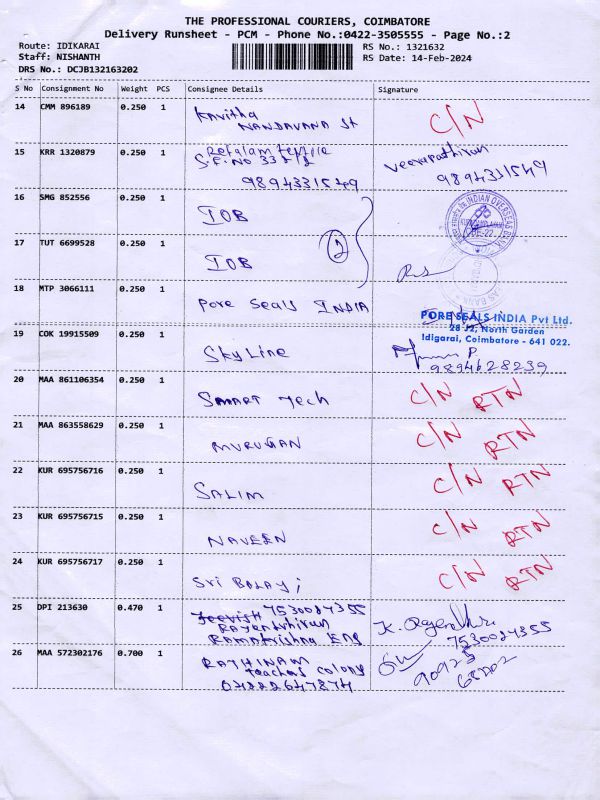 THE PROFESSIONAL COURIERS, COIMBATORE
Delivery Runsheet - PCM - Phone No.:0422-3505555 - Page No.:2
Route: IDIKARAI
RS No.: 1321632
Staff: NISHANTH
RS Date: 14-Feb-2024
DRS No.: DCJB132163202
S No Consignment No Weight PCS Consignee Details Signature
14 CMM 896189 0.250 1 Kavitha C/N
NANDAVANA St
15 KRR 1320879 0.250 1 textile
S.F. No 33 2/2 Veerapathiran
9894331549 9894331549
16 SMG 852556 0.250 1 IOB
INDIAN OVERSEAS BANK
17 TUT 6699528 0.250 1 IOB
2
18 MTP 3066111 0.250 1 Pore Seals INDIA
PORE SEALS INDIA Pvt Ltd.
28 J2, North Garden
Idigarai, Coimbatore - 641 022.
19 COK 19915509 0.250 1 SkyLine
9894628239
20 MAA 861106354 0.250 1 Smart Tech C/N RTN
21 MAA 863558629 0.250 1 MURUGAN C/N RTN
22 KUR 695756716 0.250 1 SALIM C/N RTN
23 KUR 695756715 0.250 1 NAVEEN C/N RTN
24 KUR 695756717 0.250 1 Sri Balaji C/N RTN
25 DPI 213630 0.470 1 7530024355
Ramakrishna Eng
7530024355
26 MAA 572302176 0.700 1 RATHINAM
Teachers colony
04222647874
90925
68202